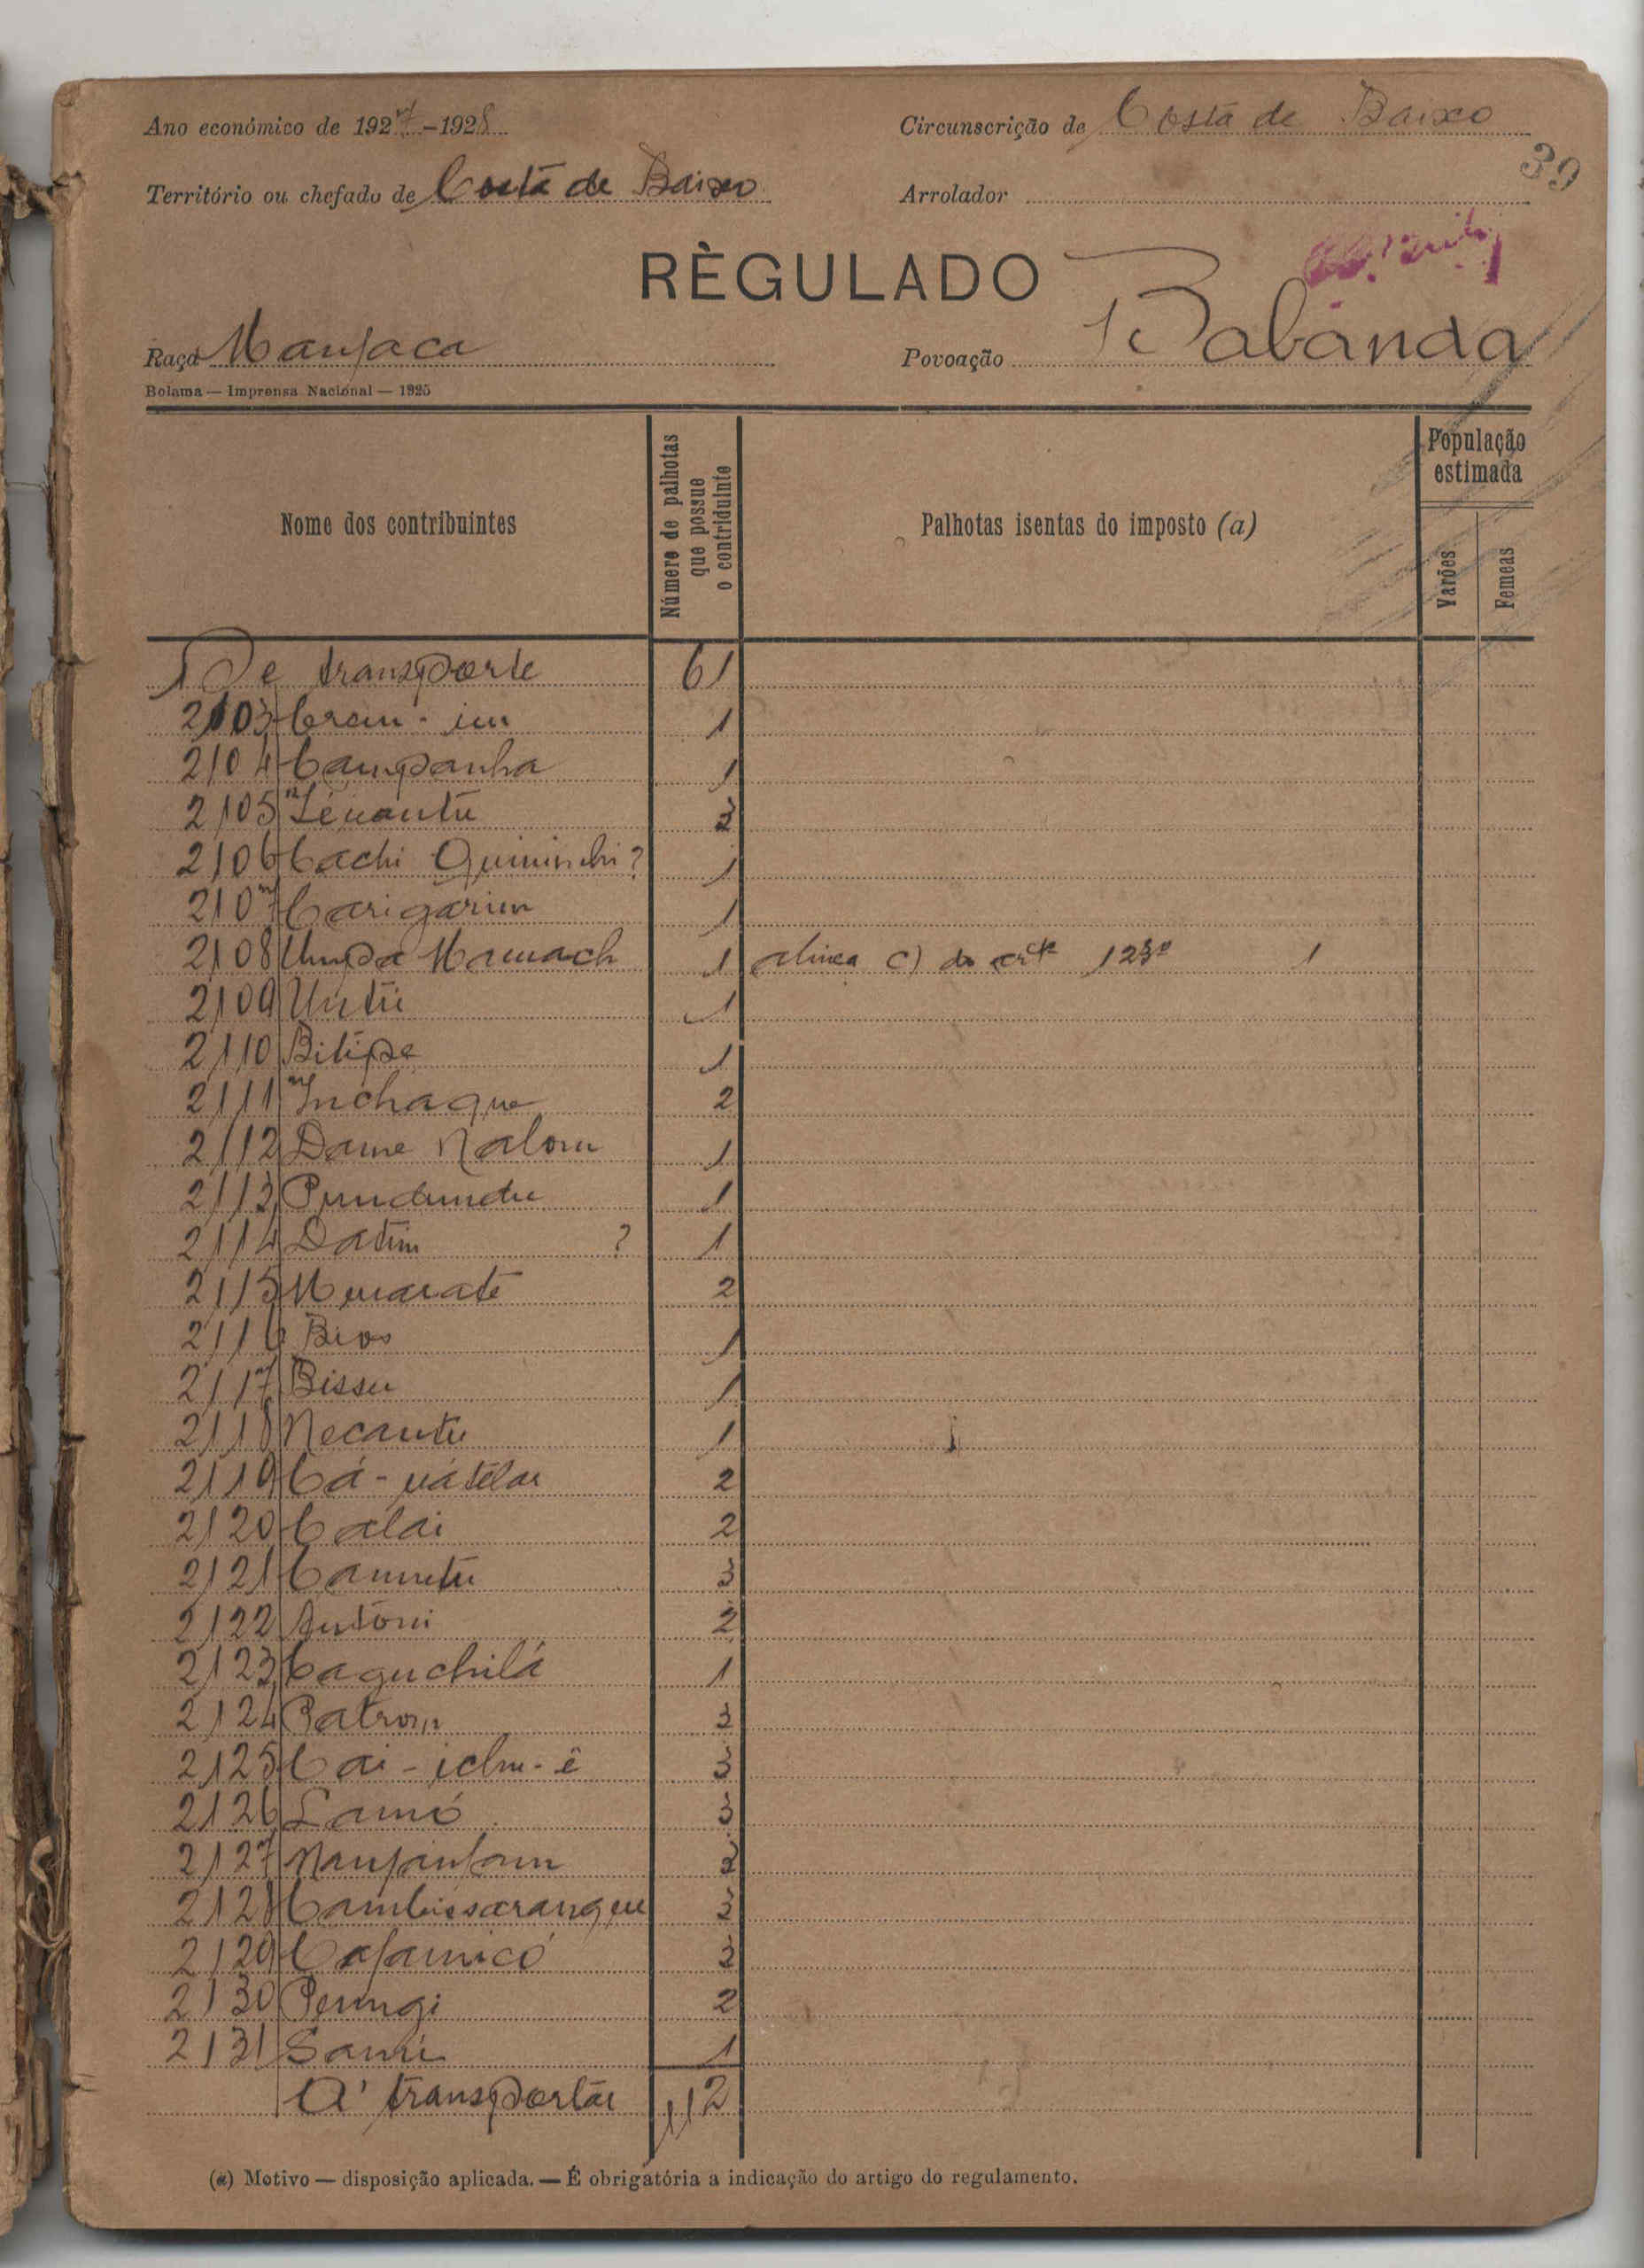 Ano económico de 1927-1928
Circunscrição de Costa de Baixo
39
Território ou chefado de Costa de Baixo
Arrolador
RÈGULADO
Raça Manjaca
Povoação Babanda
Bolama — Imprensa Nacional — 1925
Nome dos contribuintes
Número de palhotas que possue o contriduinte
Palhotas isentas do imposto (a)
População estimada
Varões
Femeas
De transporte 61
2103 1
2104 Campanha 1
2105
2106 Cachi Quininchi? 1
2107 Carigarim 1
2108 Umpa Mamach 1 alinea c) do artº 1
2109 Untú 1
2110 Bitipa 1
2111 Inchaque 2
2112 Dame Nalom 1
2113 Pundundu 1
2114 Datim ? 1
2115 2
2116 Bios 1
2117 Bissu 1
2118 Necantu 1
2119 2
2120 Calai 2
2121
2122 Antóni 2
2123 Caguchilá 1
2124 Patrom
2125
2126 Lamó
2127
2128 Cambissarangue
2129 Cajamicó
2130 Perungi 2
2131 Sami 1
A' transportar 112
(a) Motivo — disposição aplicada. — É obrigatória a indicação do artigo do regulamento.